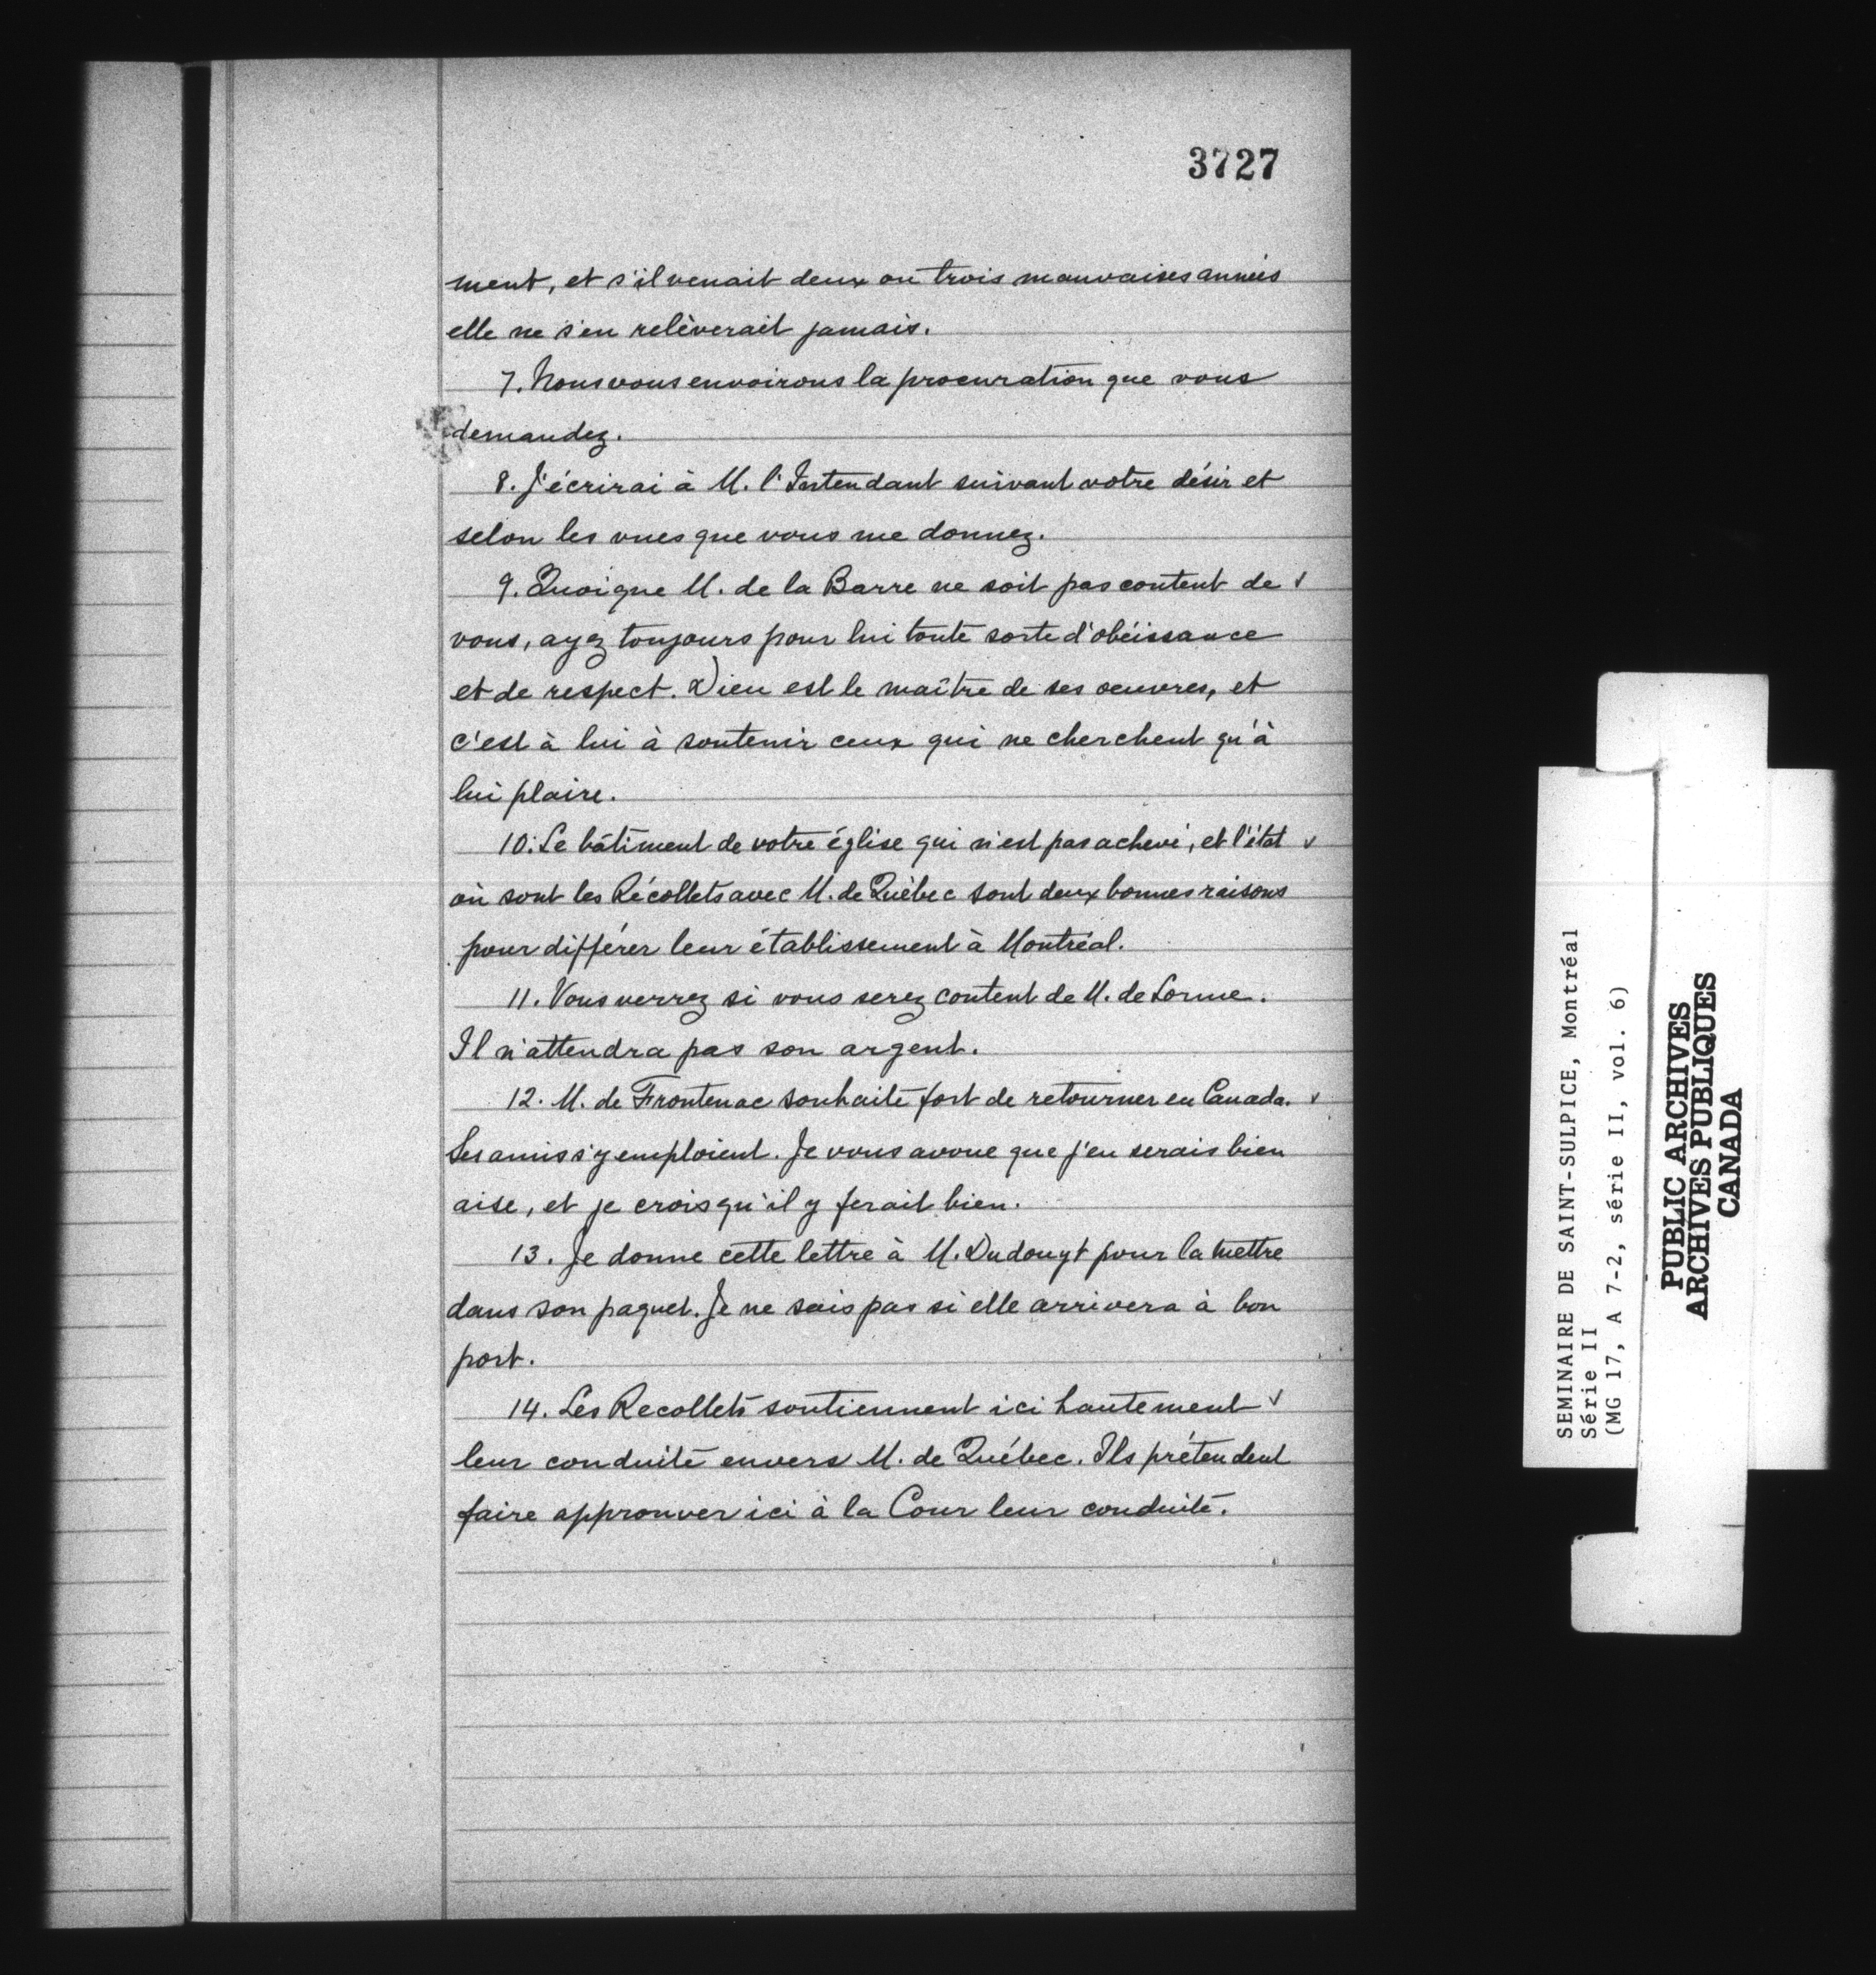 3727
ment, et s'il venait deux ou trois mauvaises années
elle ne s'en relèverait jamais.
7. Nous vous envoirons la procuration que vous
demandez.
8. J'écrirai à M. l'Intendant suivant votre désir et
selon les vues que vous me donnez.
9. Quoique M. de la Barre ne soit pas content de
vous, ayez toujours pour lui toute sorte d'obéissance
et de respect. Dieu est le maître de ses oeuvres, et
c'est à lui à soutenir ceux qui ne cherchent qu'à
lui plaire.
10. Le bâtiment de votre église qui n'est pas achevé, et l'état
où sont les Récollets avec M. de Québec sont deux bonnes raisons
pour différer leur établissement à Montréal.
11. Vous verrez si vous serez content de M. de Lorme.
Il n'attendra pas son argent.
12. M. de Frontenac souhaite fort de retourner en Canada.
Ses amis s'y emploient. Je vous avoue que j'en serais bien
aise, et je crois qu'il y ferait bien.
13. Je donne cette lettre à M. Dudouyt pour la mettre
dans son paquet. Je ne sais pas si elle arrivera à bon
port.
14. Les Recollets soutiennent ici hautement
leur conduite envers M. de Québec. Ils prétendent
faire approuver ici à la Cour leur conduite.
SEMINAIRE DE SAINT-SULPICE, Montréal
Série II
(MG 17, A 7-2, série II, vol. 6)
PUBLIC ARCHIVES
ARCHIVES PUBLIQUES
CANADA